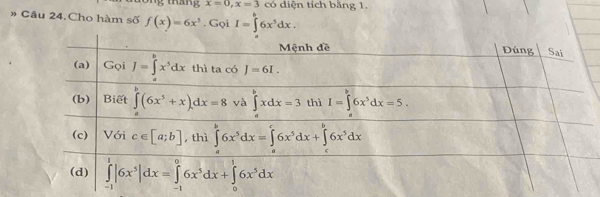 thẳng x = 0, x = 3 có diện tích bằng 1.
» Câu 24. Cho hàm số f(x) = 6x⁵. Gọi I = ∫ₐᵇ 6x⁵dx.
Mệnh đề Đúng Sai
(a) Gọi J = ∫ₐᵇ x⁵dx thì ta có J = 6I.
(b) Biết ∫ₐᵇ (6x⁵ + x)dx = 8 và ∫ₐᵇ xdx = 3 thì I = ∫ₐᵇ 6x⁵dx = 5.
(c) Với c ∈ [a;b], thì ∫ₐᵇ 6x⁵dx = ∫ₐᶜ 6x⁵dx + ∫꜀ᵇ 6x⁵dx
(d) ∫₋₁¹ |6x⁵|dx = ∫₋₁⁰ 6x⁵dx + ∫₀¹ 6x⁵dx